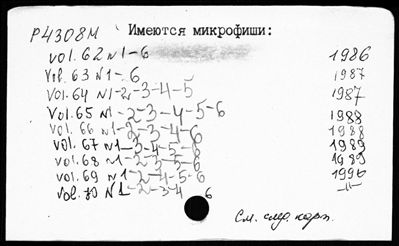 Р4308М Имеются микрофиши:
vol. 62 N1-6 1986
Vol. 63 N1-6 1987
Vol. 64 N1-2-3-4-5 1987
Vol. 65 N1-2-3-4-5-6 1988
Vol. 66 N1-2-3-4-6 1988
Vol. 67 N1-3-4-5-6 1989
vol. 68 N1-2-3-5-6 1989
vol. 69 N1-2-4-5-6 1990
vol. 70 N1-2-3-4 6 -"-
См. след. карт.